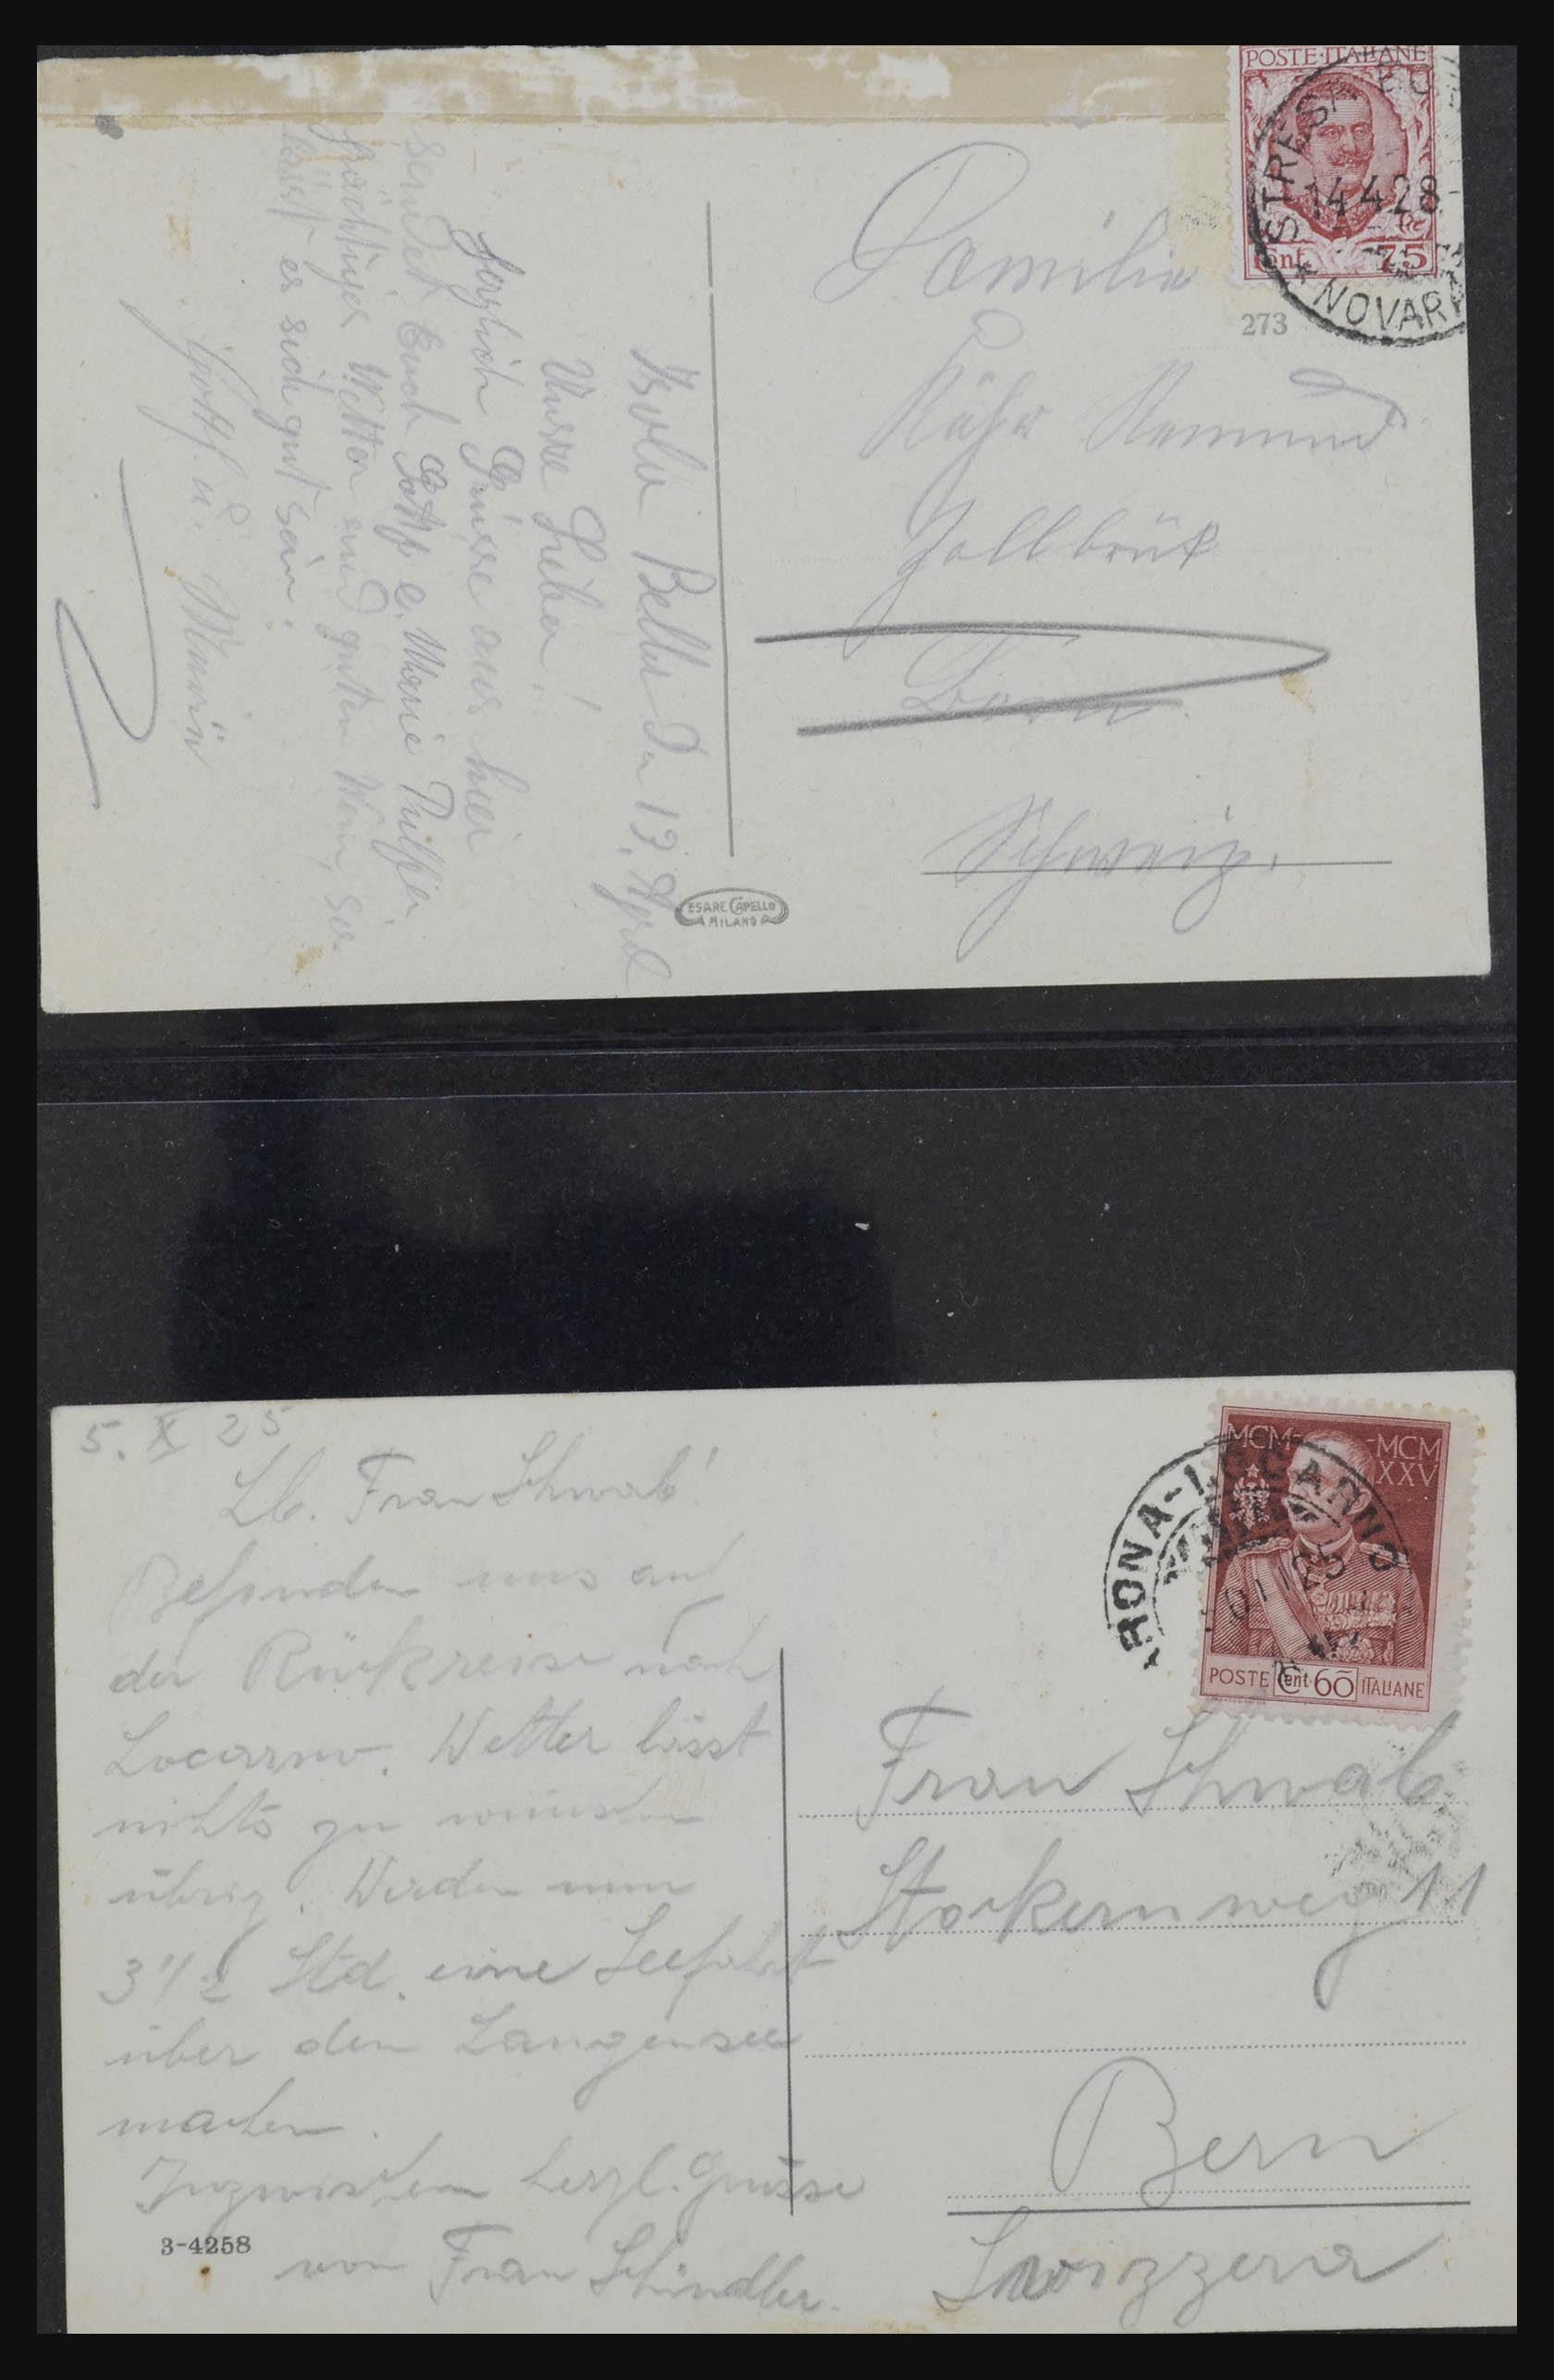 POSTE·ITALIANE
STRESA
14.4.28
Cent. 75
NOVARA
273
Familie
Zollbrük
Bern
Schweiz.
CESARE CAPELLO
MILANO
Isola Bella den 13. April
Unsre Lieben!
Herzlich Grüsse aus hier
sendet Euch Gottf. & Marie
prächtiges Wetter und guten Wein, so
lässt es sich gut sein.
Gottf. u.
5. X 25
Lb. Frau Schwab!
Befinden uns auf
der Rückreise nach
Locarno. Wetter lässt
nichts zu wünschen
übrig. Werden nun
3 1/2 Std. eine Seefahrt
über den Langensee
machen.
Inzwischen herzl. Grüsse
von Frau Schindler.
3-4258
MCM- -MCM
XXV
RONA-LOCARNO
25
POSTE Cent 60 ITALIANE
Frau Schwab
Stockernweg 11
Bern
Svizzera